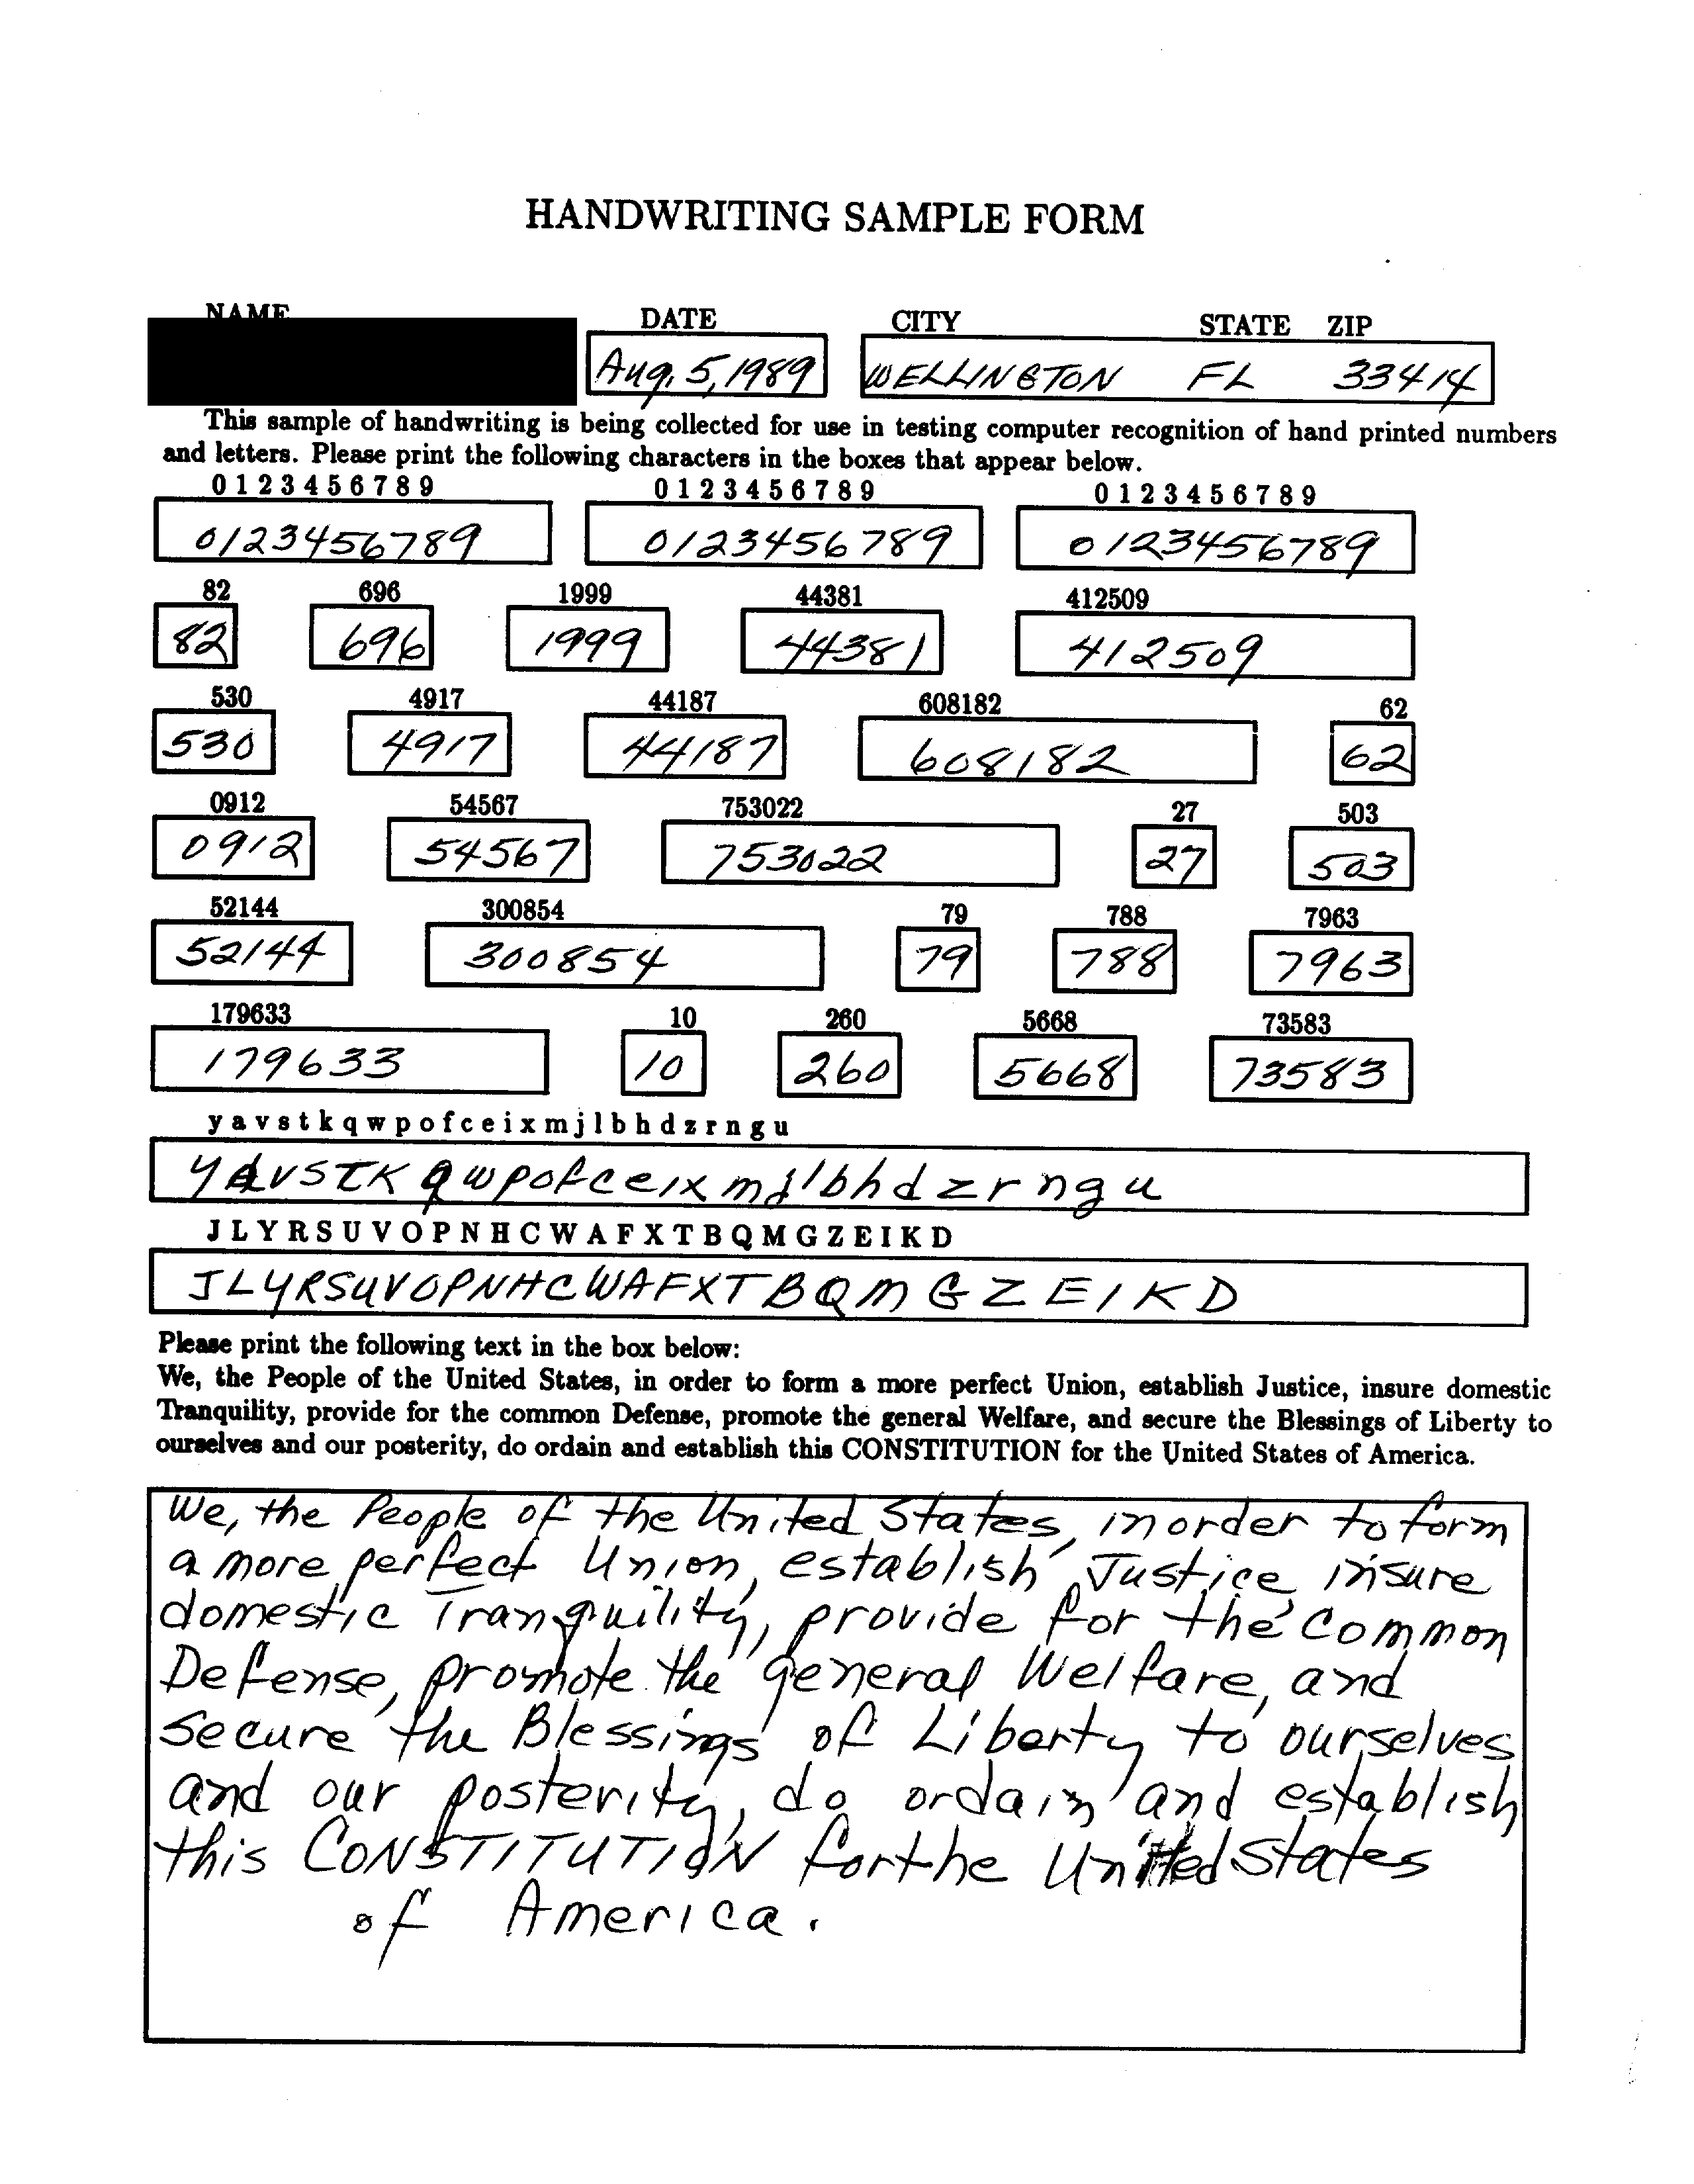 HANDWRITING SAMPLE FORM
NAME DATE CITY STATE ZIP
Aug. 5, 1989 WELLINGTON FL 33414
This sample of handwriting is being collected for use in testing computer recognition of hand printed numbers
and letters. Please print the following characters in the boxes that appear below.
0 1 2 3 4 5 6 7 8 9 0 1 2 3 4 5 6 7 8 9 0 1 2 3 4 5 6 7 8 9
0123456789 0123456789 0123456789
82 696 1999 44381 412509
82 696 1999 44381 412509
530 4917 44187 608182 62
530 4917 44187 608182 62
0912 54567 753022 27 503
0912 54567 753022 27 503
52144 300854 79 788 7963
52144 300854 79 788 7963
179633 10 260 5668 73583
179633 10 260 5668 73583
y a v s t k q w p o f c e i x m j l b h d z r n g u
yavstkqwpofceixmjlbhdzrngu
J L Y R S U V O P N H C W A F X T B Q M G Z E I K D
JLYRSUVOPNHCWAFXTBQMGZEIKD
Please print the following text in the box below:
We, the People of the United States, in order to form a more perfect Union, establish Justice, insure domestic
Tranquility, provide for the common Defense, promote the general Welfare, and secure the Blessings of Liberty to
ourselves and our posterity, do ordain and establish this CONSTITUTION for the United States of America.
We, the People of the United States, in order to form
a more perfect Union, establish Justice, insure
domestic Tranquility, provide for the common
Defense, promote the general Welfare, and
secure the Blessings of Liberty to ourselves
and our posterity, do ordain and establish
this CONSTITUTION for the United States
of America.